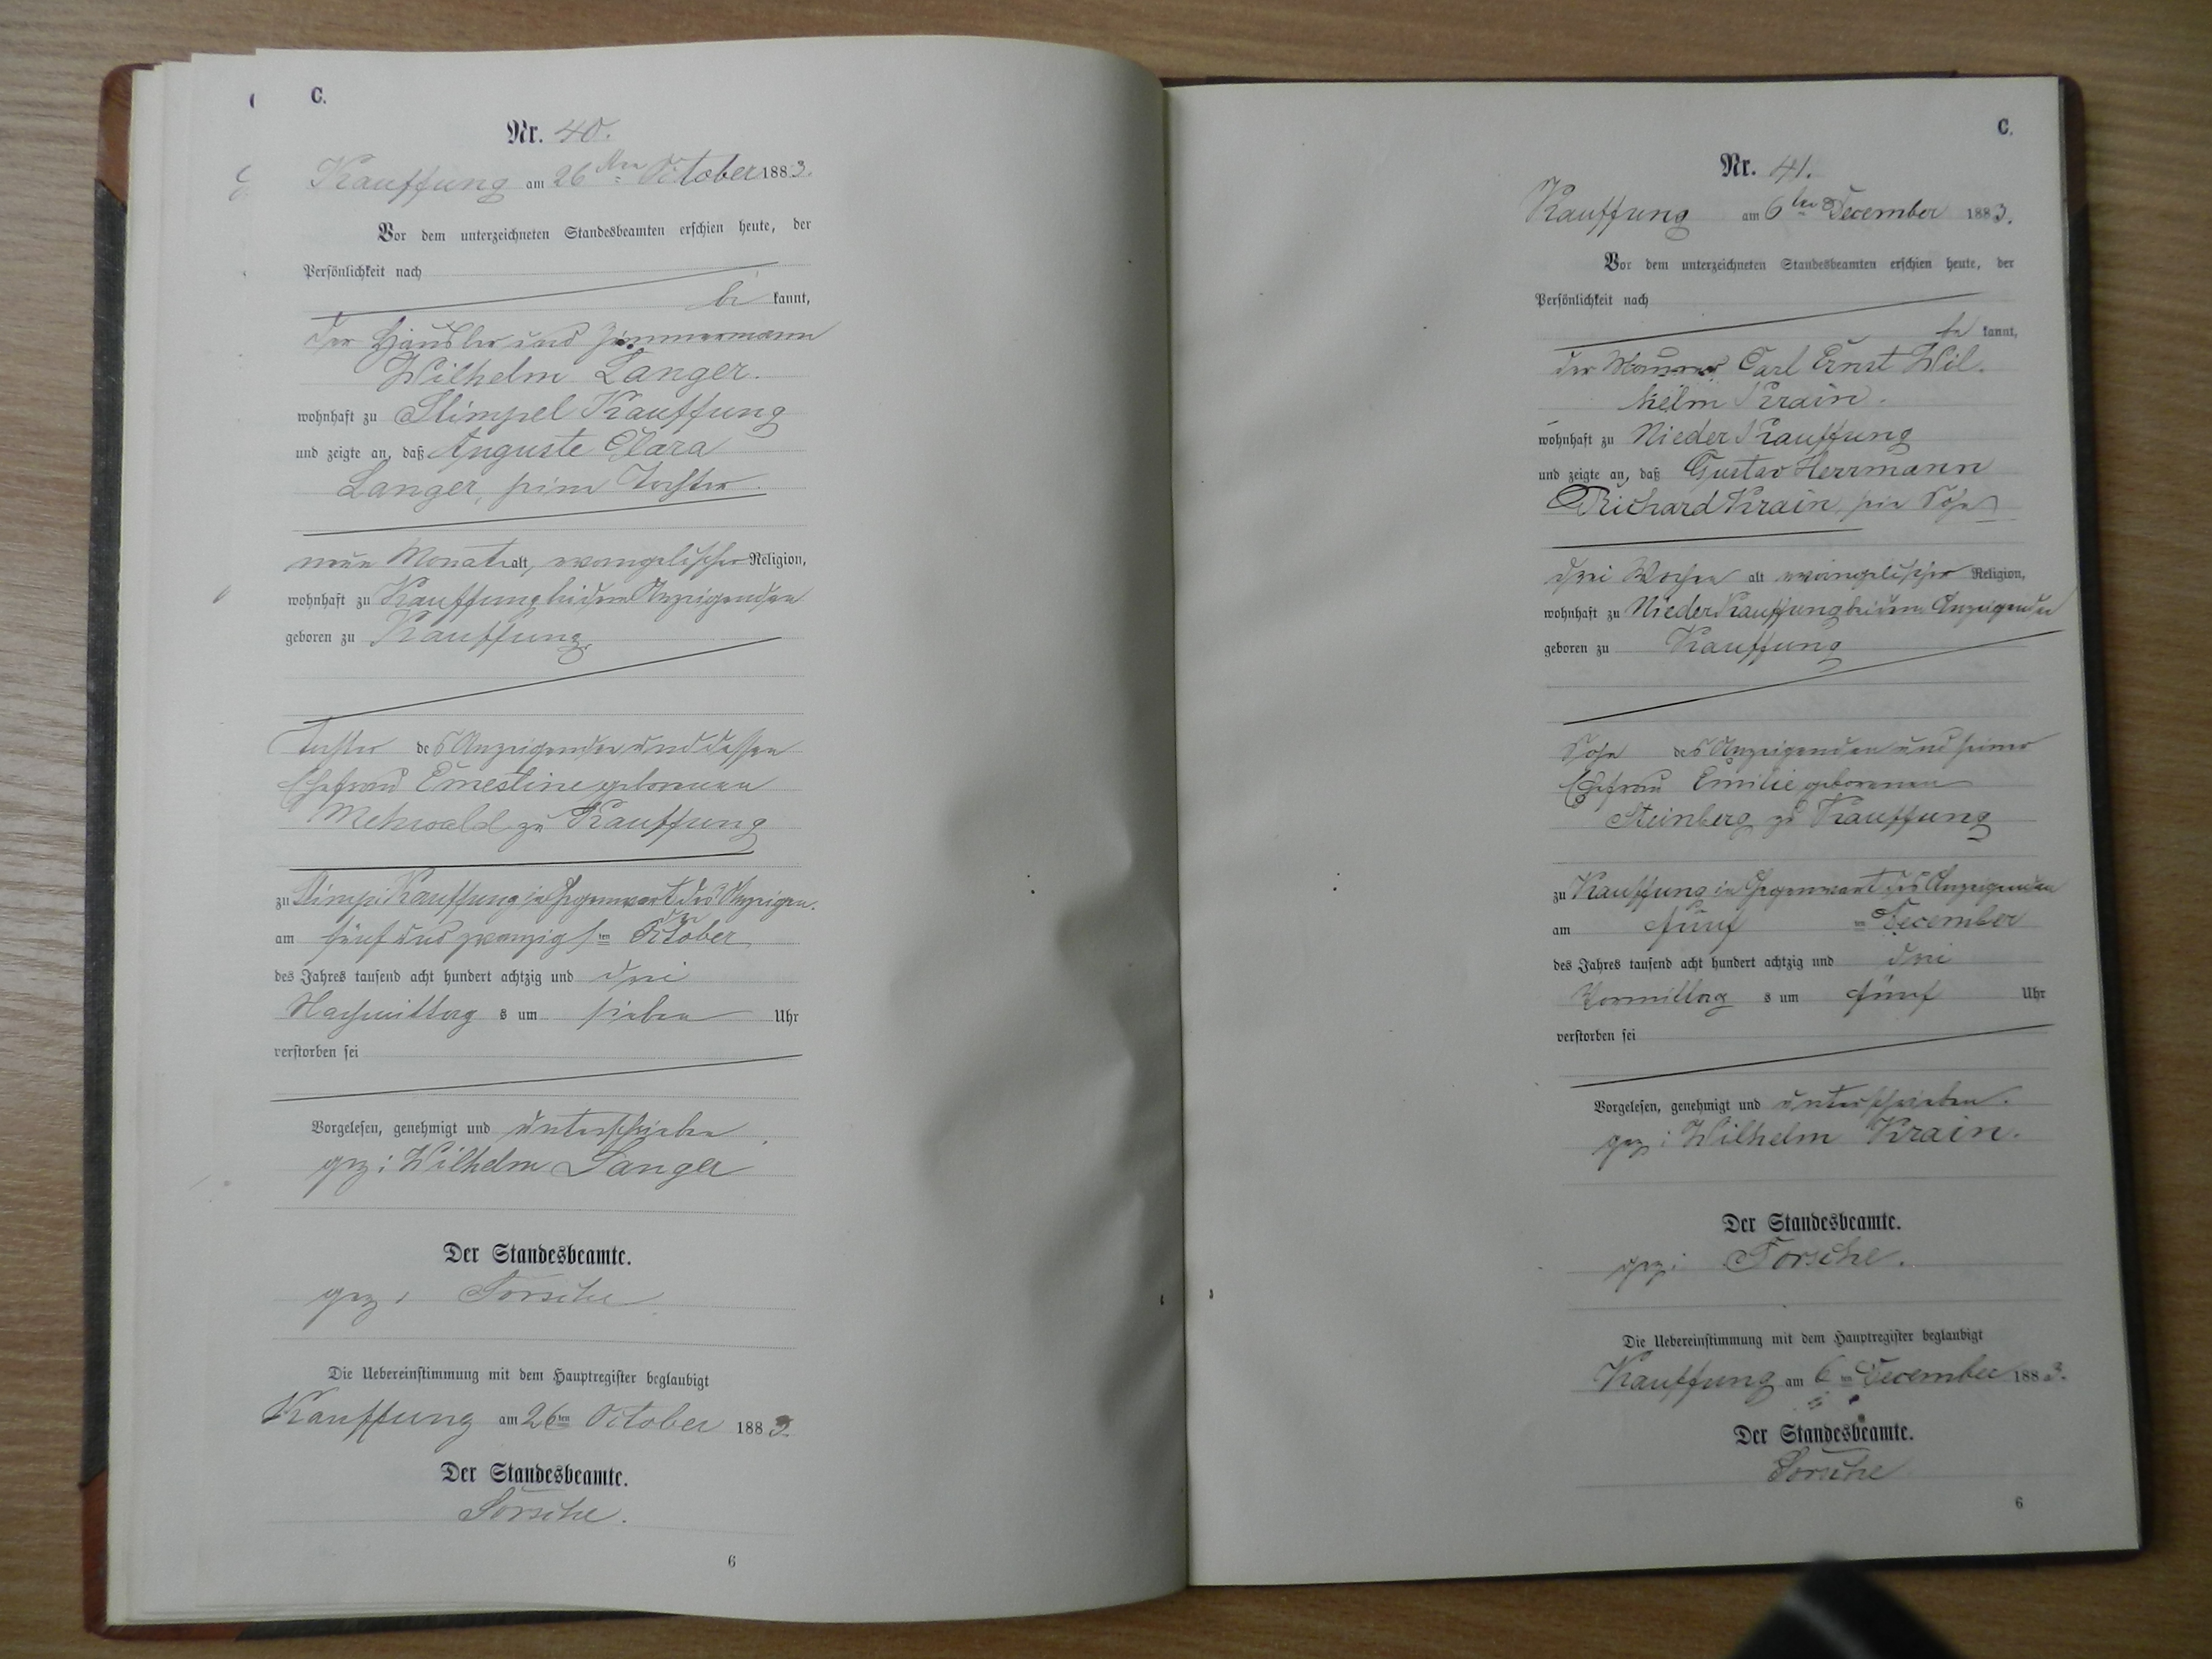 C.
Nr. 40.
Kauffung am 26ten October 1883.
Vor dem unterzeichneten Standesbeamten erschien heute, der
Persönlichkeit nach
be kannt,
der Häusler und Zimmermann
Wilhelm Langer.
wohnhaft zu Stimpel Kauffung
und zeigte an, daß Auguste Clara
Langer, seine Tochter.
neun Monate alt, evangelischer Religion,
wohnhaft zu Kauffung bei dem Anzeigenden
geboren zu Kauffung.
Tochter des Anzeigenden und dessen
Ehefrau Ernestine geborenen
Mehwald zu Kauffung
zu Kauffung in Gegenwart des Anzeigen.
am fünf und zwanzigsten October
des Jahres tausend acht hundert achtzig und drei
Nachmittag s um sieben Uhr
verstorben sei
Vorgelesen, genehmigt und unterschrieben
gez: Wilhelm Langer
Der Standesbeamte.
gez:
Die Uebereinstimmung mit dem Hauptregister beglaubigt
Kauffung am 26ten October 1883.
Der Standesbeamte.
6
C.
Nr. 41.
Kauffung am 6ten December 1883.
Vor dem unterzeichneten Standesbeamten erschien heute, der
Persönlichkeit nach
be kannt,
der Maurer Carl Ernst Wil.
helm Krain.
wohnhaft zu Nieder Kauffung
und zeigte an, daß Gustav Herrmann
Richard Krain, sein Sohn
drei Wochen alt evangelischer Religion,
wohnhaft zu Nieder Kauffung bei dem Anzeigenden
geboren zu Kauffung
Sohn des Anzeigenden und seiner
Ehefrau Emilie geborenen
Steinberg zu Kauffung
zu Kauffung in Gegenwart des Anzeigenden
am fünf ten December
des Jahres tausend acht hundert achtzig und drei
Vormittag s um fünf Uhr
verstorben sei
Vorgelesen, genehmigt und unterschrieben.
gez: Wilhelm Krain.
Der Standesbeamte.
gez:
Die Uebereinstimmung mit dem Hauptregister beglaubigt
Kauffung am 6ten December 1883.
Der Standesbeamte.
6